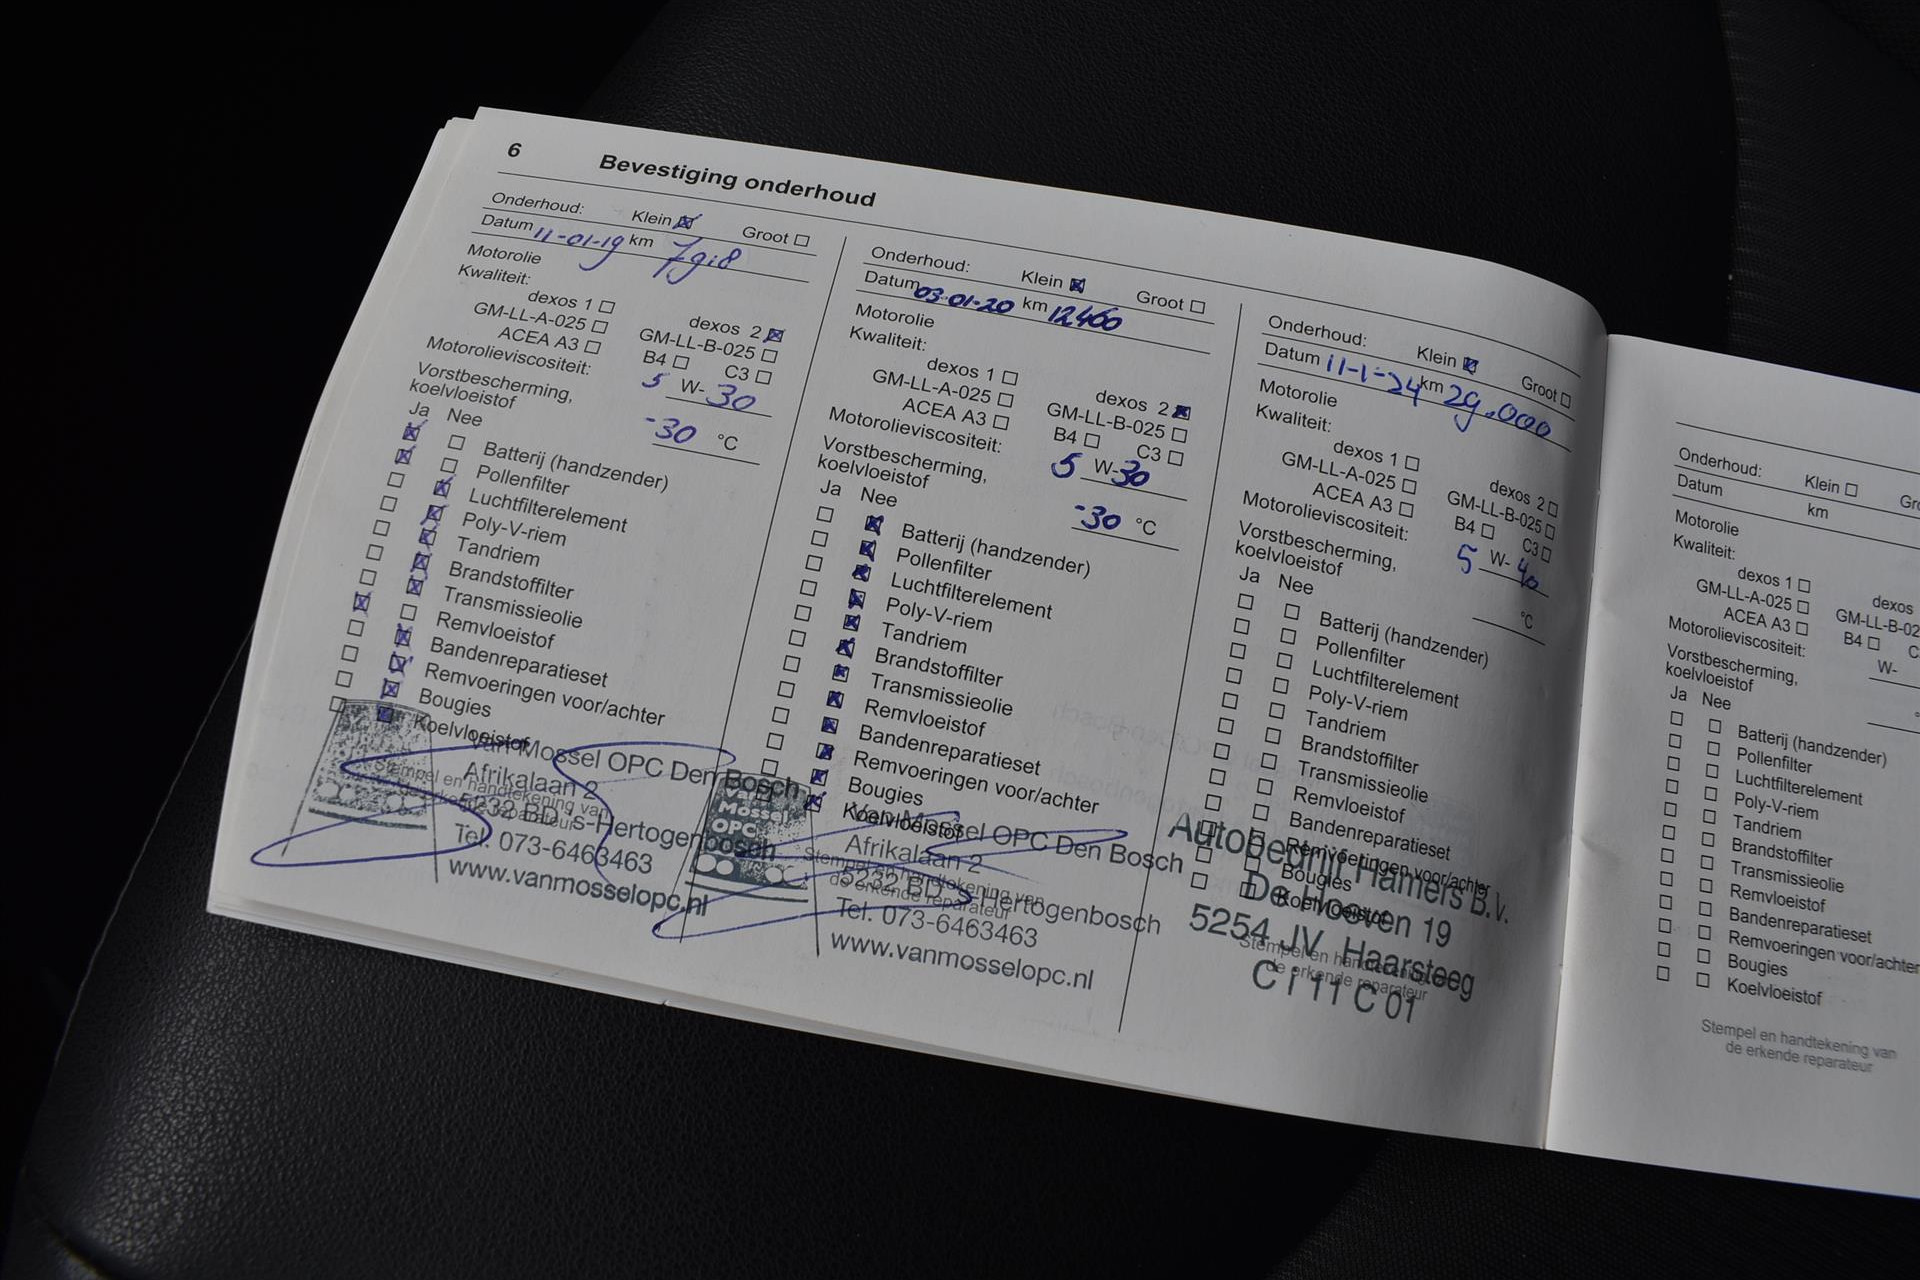 6 Bevestiging onderhoud
Onderhoud: Klein Groot
Datum 11-01-19 km 7918
Motorolie
Kwaliteit:
dexos 1 dexos 2
GM-LL-A-025 GM-LL-B-025
ACEA A3 B4 C3
Motorolieviscositeit: 5 W-30
Vorstbescherming,
koelvloeistof -30 °C
Ja Nee
Batterij (handzender)
Pollenfilter
Luchtfilterelement
Poly-V-riem
Tandriem
Brandstoffilter
Transmissieolie
Remvloeistof
Bandenreparatieset
Remvoeringen voor/achter
Bougies
Koelvloeistof
Stempel en handtekening van
de erkende reparateur
Van Mossel OPC Den Bosch
Afrikalaan 2
5232 BD 's-Hertogenbosch
Tel. 073-6463463
www.vanmosselopc.nl
Onderhoud: Klein Groot
Datum 03-01-20 km 12460
Motorolie
Kwaliteit:
dexos 1 dexos 2
GM-LL-A-025 GM-LL-B-025
ACEA A3 B4 C3
Motorolieviscositeit: 5 W-30
Vorstbescherming,
koelvloeistof -30 °C
Ja Nee
Batterij (handzender)
Pollenfilter
Luchtfilterelement
Poly-V-riem
Tandriem
Brandstoffilter
Transmissieolie
Remvloeistof
Bandenreparatieset
Remvoeringen voor/achter
Bougies
Koelvloeistof
Stempel en handtekening van
de erkende reparateur
Van
Mossel
OPC
Van Mossel OPC Den Bosch
Afrikalaan 2
5232 BD 's-Hertogenbosch
Tel. 073-6463463
www.vanmosselopc.nl
Onderhoud: Klein Groot
Datum 11-1-24 km 29.000
Motorolie
Kwaliteit:
dexos 1 dexos 2
GM-LL-A-025 GM-LL-B-025
ACEA A3 B4 C3
Motorolieviscositeit: 5 W-40
Vorstbescherming,
koelvloeistof °C
Ja Nee
Batterij (handzender)
Pollenfilter
Luchtfilterelement
Poly-V-riem
Tandriem
Brandstoffilter
Transmissieolie
Remvloeistof
Bandenreparatieset
Remvoeringen voor/achter
Bougies
Koelvloeistof
Stempel en handtekening
de erkende reparateur
Autobedrijf Hamers B.V.
De Hoeven 19
5254 JV Haarsteeg
C i 11 C 01
Onderhoud: Klein
Datum km
Motorolie
Kwaliteit:
dexos 1 dexos
GM-LL-A-025 GM-LL-B-02
ACEA A3 B4 C
Motorolieviscositeit: W-
Vorstbescherming,
koelvloeistof
Ja Nee
Batterij (handzender)
Pollenfilter
Luchtfilterelement
Poly-V-riem
Tandriem
Brandstoffilter
Transmissieolie
Remvloeistof
Bandenreparatieset
Remvoeringen voor/achter
Bougies
Koelvloeistof
Stempel en handtekening van
de erkende reparateur